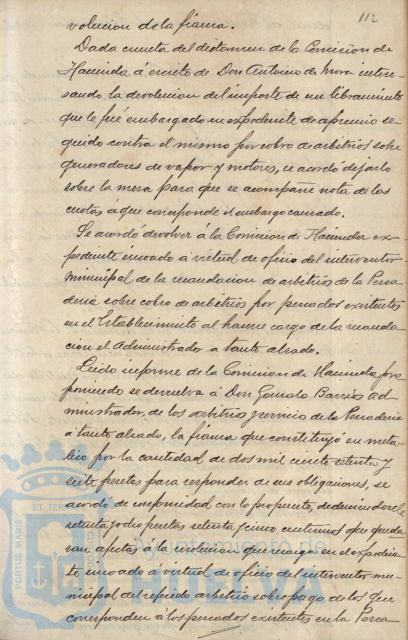 112
volucion de la fianza.
Dada cuenta del dictamen de la Comision de
Hacienda á escrito de Don Antonio de Mora intere-
sando la devolucion del importe de un libramiento
que le fué embargado en expediente de apremio se-
guido contra el mismo por cobro de arbitrios sobre
generadores de vapor y motores, se acordó dejarlo
sobre la mesa para que se acompañe nota de las
cuotas á que corresponde el embargo causado.
Se acordó devolver á la Comision de Hacienda ex-
pediente incoado á virtud de oficio del interventor
municipal de la recaudacion de arbitrios de la Pesca-
deria sobre cobro de arbitrios por pescados existentes
en el Establecimiento al hacerse cargo de la recauda-
cion el Administrador a tanto alzado.
Leido informe de la Comision de Hacienda pro-
poniendo se devuelva á Don Gonzalo Barrios ad-
ministrador, de los arbitrios y servicio de la Pescaderia
á tanto alzado, la fianza que constituyó en meta-
lico por la cantidad de dos mil ciento setenta y
siete pesetas para responder de sus obligaciones, se
acordó de conformidad con lo propuesto, deduciendose las
setenta y dos pesetas setenta y cinco centimos que queda-
ran afectas á la resolucion que recaiga en el expedien-
te incoado á virtud de oficio del interventor mu-
nicipal del referido arbitrio sobre pago de los que
corresponden á los pescados existentes en la Pesca-
PORTUS MARIS
ET TERRÆ
Ayuntamiento de